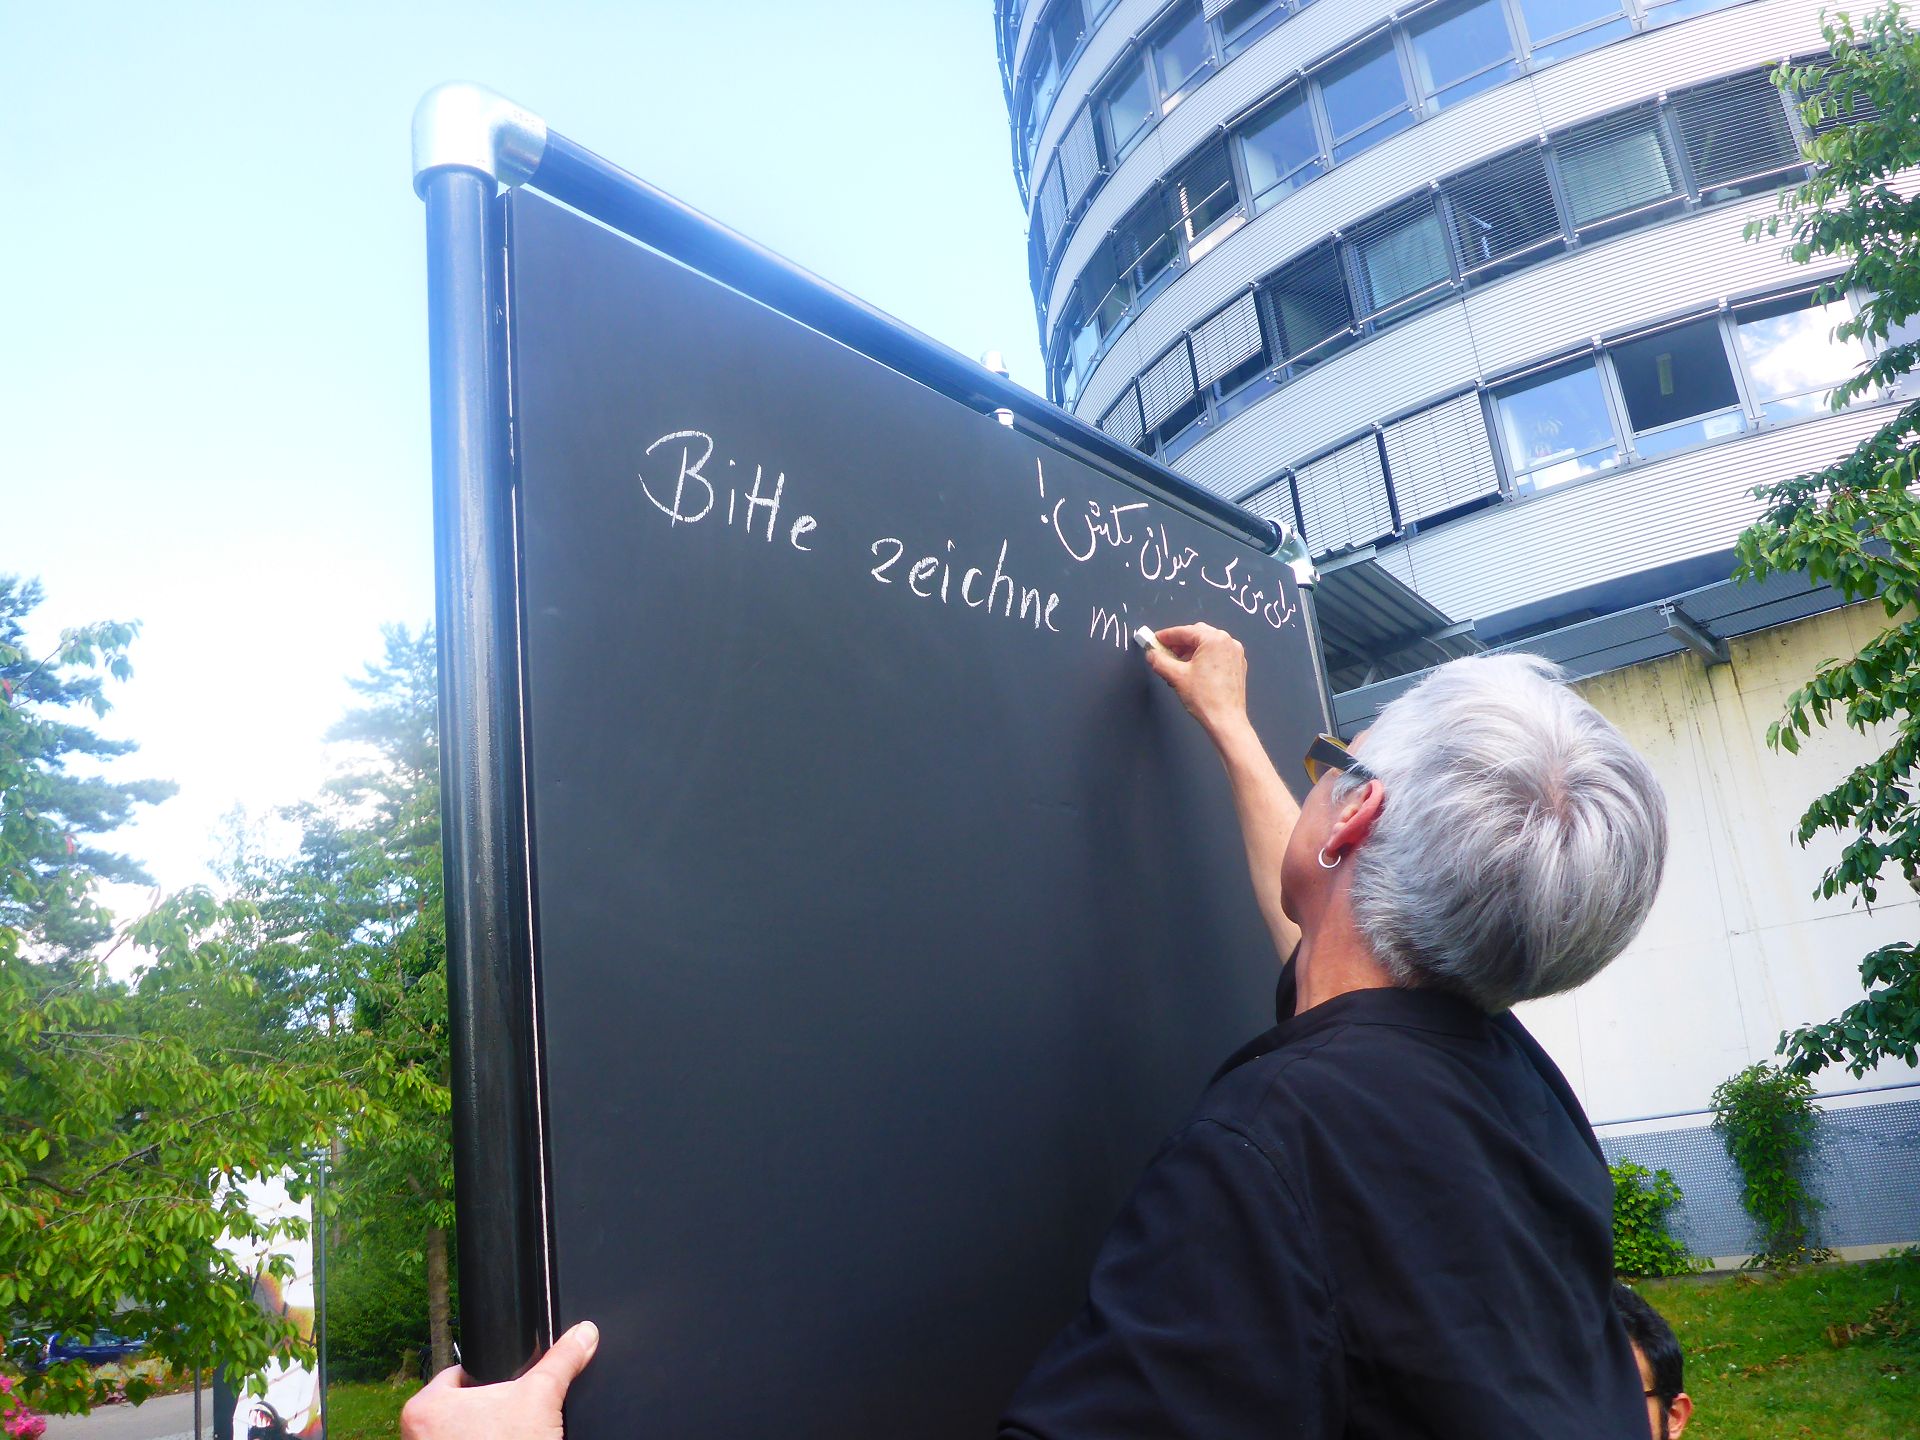 برای من یک حیوان بکش!
Bitte zeichne mi